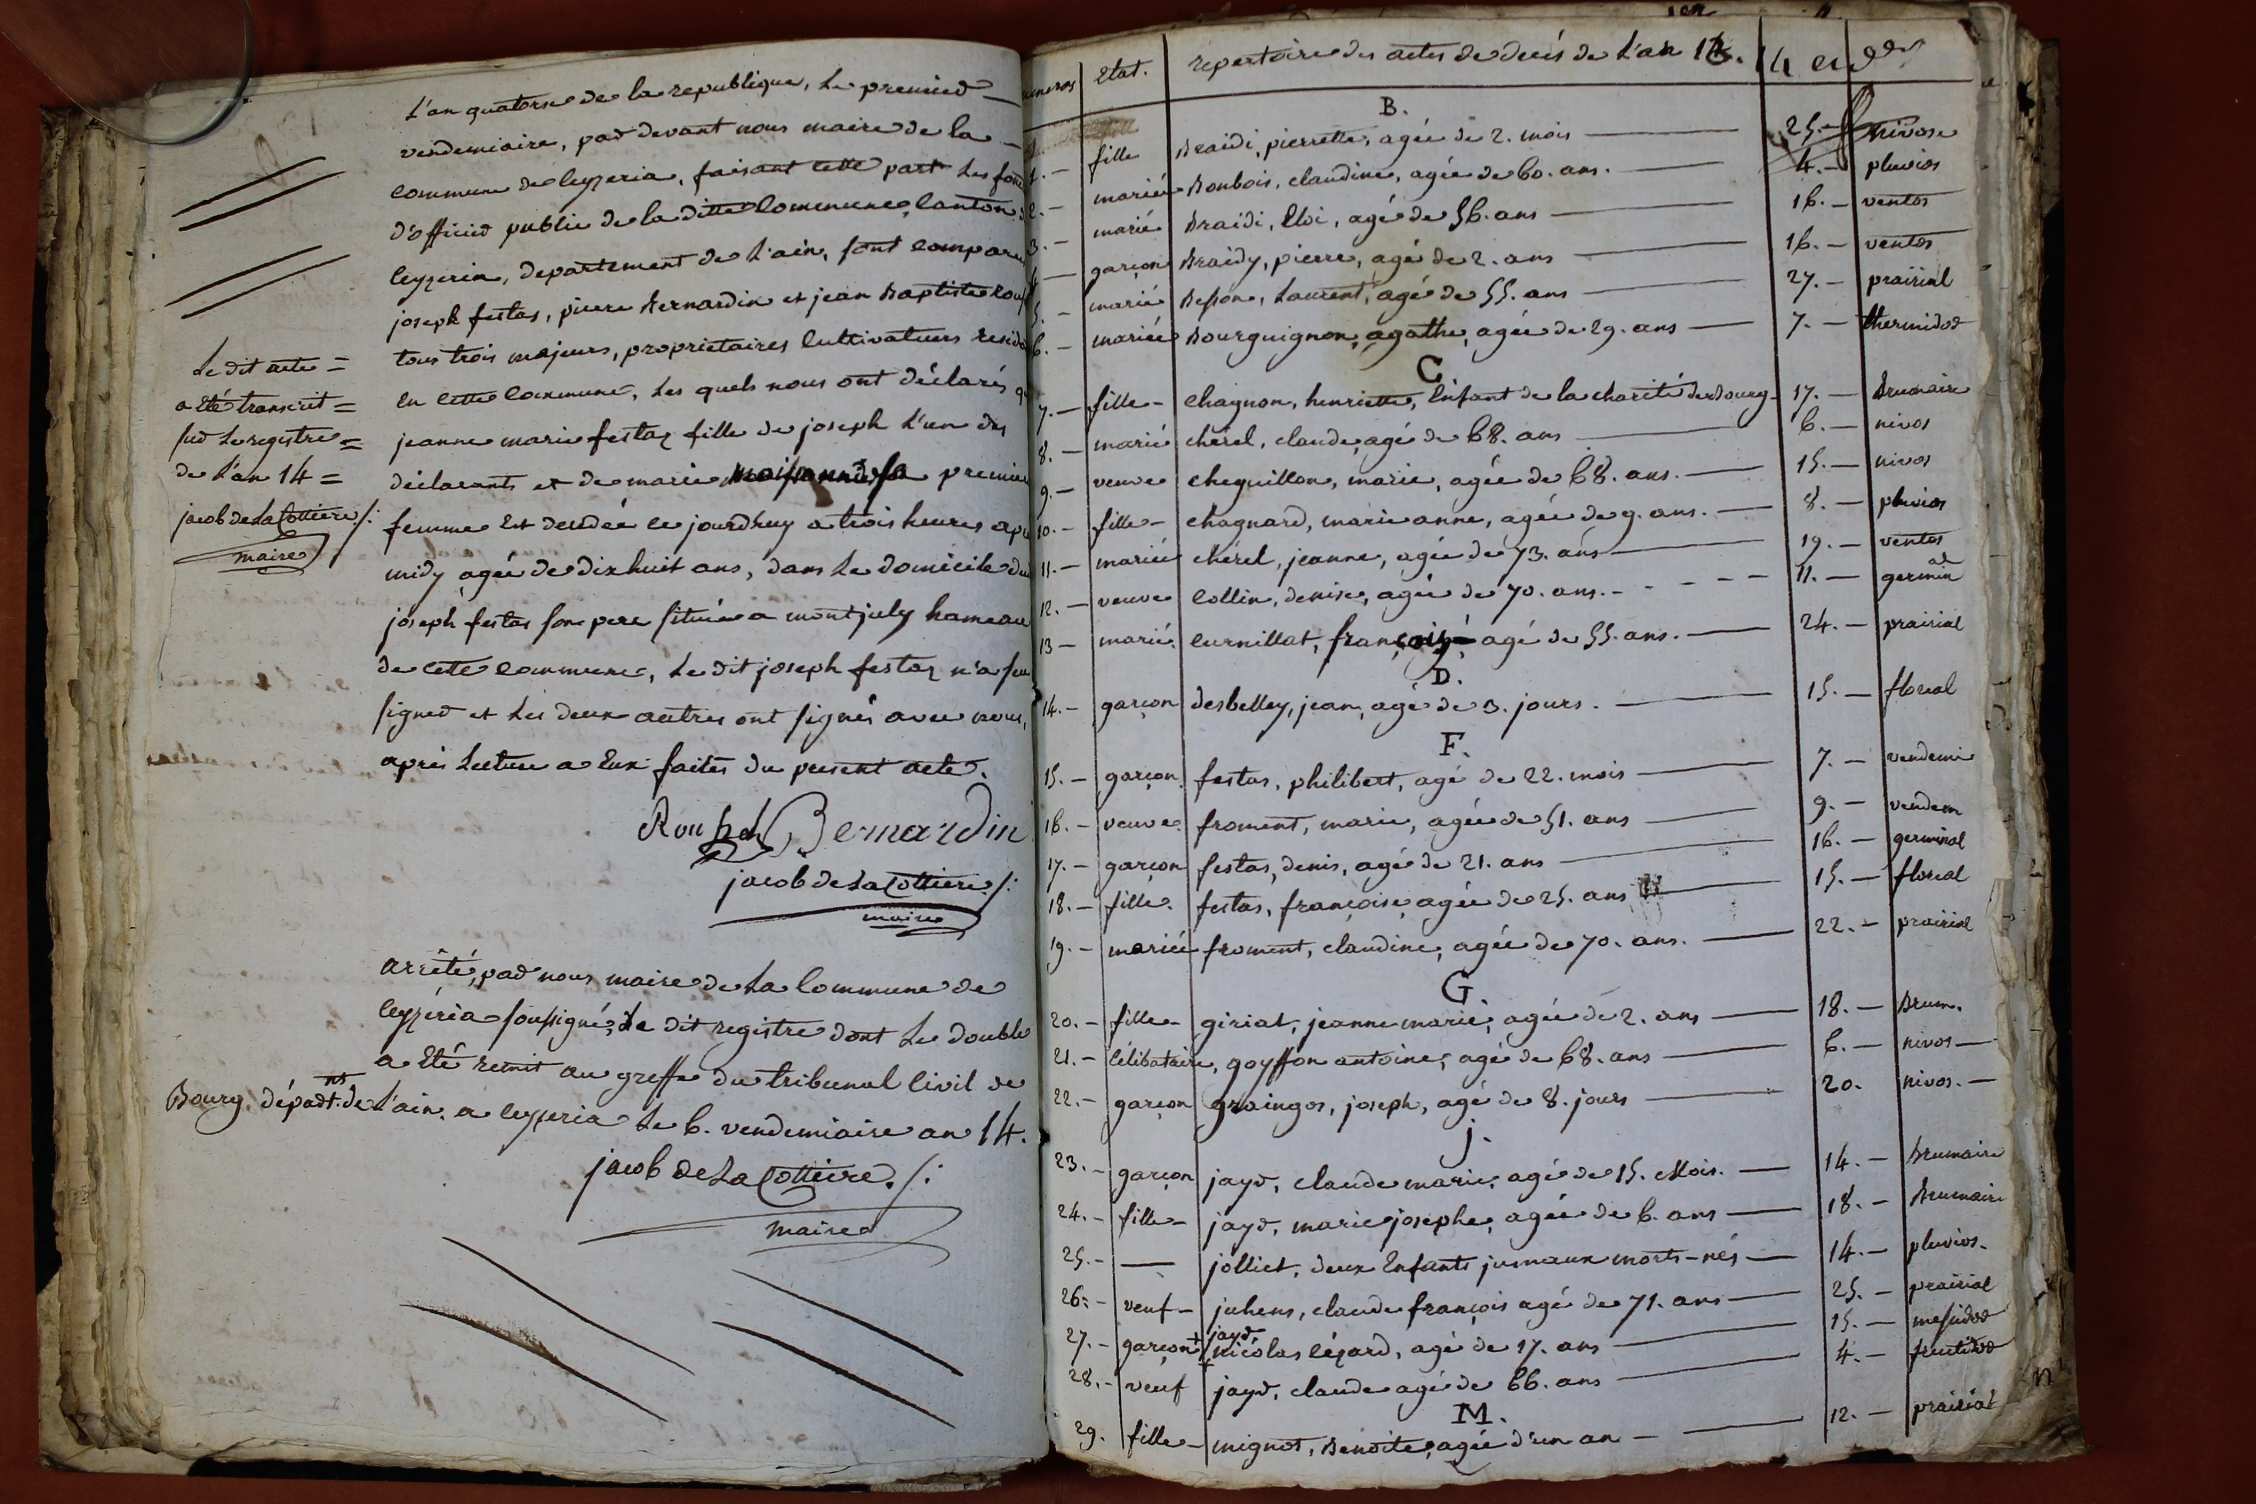 L'an quatorse de la republique, le premier
vendemiaire, par devant nous maire de la
commune de leyzeria, faisant cette part les fon
d'officier public de la ditte commune, canton
leyzeria, departement de l'ain, sont comparu
joseph festas, pierre Bernardin et jean Baptiste
tous trois majeurs, proprietaires cultivateurs resid
en cette commune, les quels nous ont déclarés q
jeanne marie festaz fille de joseph l'un des
déclarants et de marie sa premier
femme est decedée ce jourdhuy a trois heures apr
midy agée de dix huit ans, dans le domicile du
joseph festas son pere située a montjuly hameau
de cette commune, le dit joseph festaz n'a su
signer et les deux autres ont signés avec nous,
après lecture a eux faites du present acte.
le dit acte =
a été transcrit =
sur le registre =
de l'an 14 =
jacob de la Cottiere ./.
maire
Bernardin
jacob de la Cottiere ./.
maire
arrêté, par nous maire de la commune de
leyzéria soussigné, le dit registre dont le double
a été remit au greffe du tribunal civil de
Bourg, départ. de l'ain. a leyzeria le 6. vendemiaire an 14.
jacob de la Cottiere ./.
maire
numeros Etat. repertoire des actes de decés de l'an 13. 14 et
B.
1. — fille Braidi, pierrette, agée de 2. mois — 25. — nivose
2. — mariée Bonbois, claudine, agée de 60. ans. — 4. — pluvios
3. — marié Braidi, Eloi, agé de 56. ans — 16. — ventos
4. — garçon Braidy, pierre, agé de 2. ans — 16. — ventos
5. — marié Besson, Laurent, agé de 55. ans — 27. — prairial
6. — mariée Bourguignon, agathe, agée de 29. ans — 7. — thermidor
C
7. — fille — chagnon, henriette, enfant de la charité de Bourg — 17. — Brumaire
8. — marié chérel, claude, agé de 68. ans — 6. — nivos
9. — veuve cheguillon, marie, agée de 68. ans. — 15. — nivos
10. — fille — chagnard, marie anne, agée de 9. ans. — 8. — pluvios
11. — mariée chérel, jeanne, agée de 73. ans — 19. — ventos
12. — veuve collin, denise, agée de 70. ans. — 11. — germinal
13 — marié curnillat, agé de 55. ans. — 24. — prairial
D.
14. — garçon desbelley, jean, agé de 3. jours. — 15. — floreal
F.
15. — garçon festas, philibert, agé de 22. mois — 7. — vendemi
16. — veuve froment, marie, agée de 51. ans — 9. — vendem
17. — garçon festas, denis, agé de 21. ans — 16. — germinal
18. — fille. festas, françoise, agée de 25. ans — 15. — floreal
19. — mariée froment, claudine, agée de 70. ans. — 22. — prairial
G.
20. — fille — giriat, jeanne marie, agée de 2. ans — 18. — Brum.
21. — célibataire, goyffon antoine, agé de 68. ans — 6. — nivos —
22. — garçon graingos, joseph, agé de 8. jours — 20. nivos. —
j.
23. — garçon jayr, claude marie, agé de 15. Mois. — 14. — Brumaire
24. — fille — jayr, marie josephe, agée de 6. ans — 18. — Brumaire
25. — — jolliet, deux Enfants jumaux morts-nés — 14. — pluvios.
26. — veuf — juhens, claude françois agé de 71. ans — 25. — prairial
27. — garçon + jayr nicolas léjard, agé de 17. ans — 15. — messidor
28. — veuf jayr, claude agé de 66. ans — 4. — fructidor
M.
29. fille — mignot, Benoite, agée d'un an — 12. — prairial